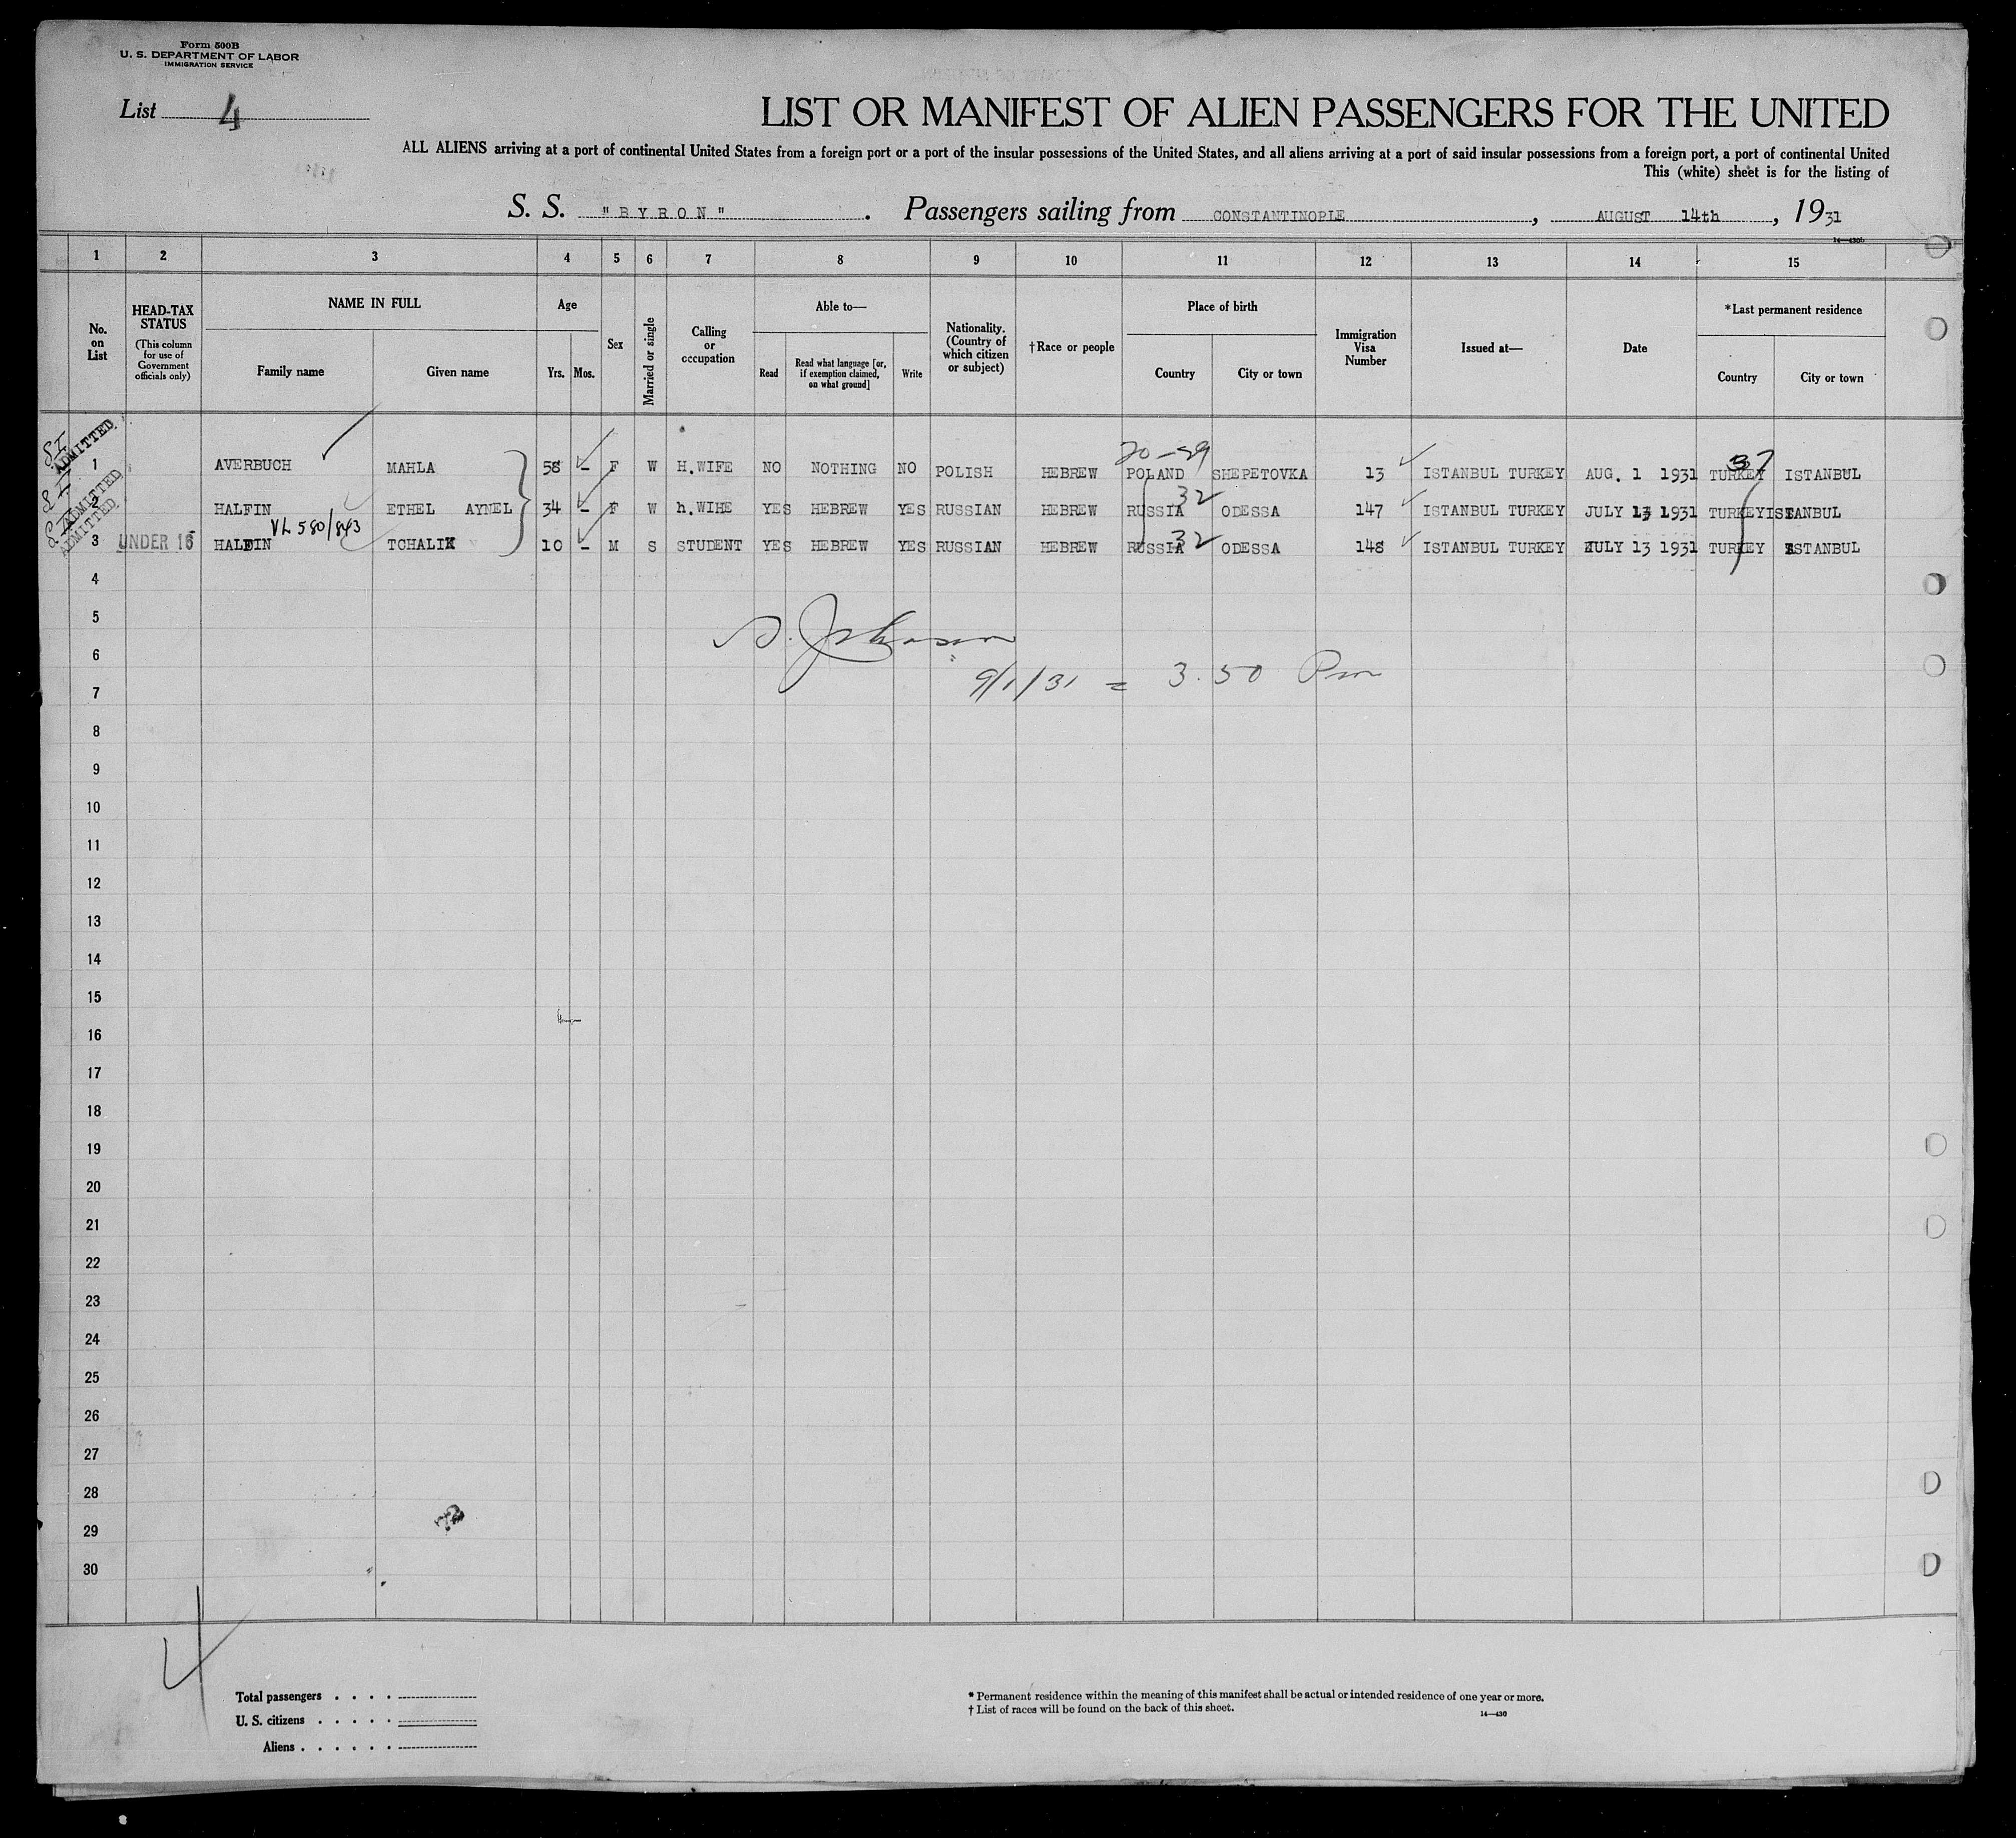 Form 500B
U. S. DEPARTMENT OF LABOR
IMMIGRATION SERVICE
List 4
LIST OR MANIFEST OF ALIEN PASSENGERS FOR THE UNITED
ALL ALIENS arriving at a port of continental United States from a foreign port or a port of the insular possessions of the United States, and all aliens arriving at a port of said insular possessions from a foreign port, a port of continental United
This (white) sheet is for the listing of
S. S. "BYRON". Passengers sailing from CONSTANTINOPLE, AUGUST 14th, 1931
14—430b
1 2 3 4 5 6 7 8 9 10 11 12 13 14 15
No. on List
HEAD-TAX STATUS
(This column for use of Government officials only)
NAME IN FULL
Family name Given name
Age
Yrs. Mos.
Sex
Married or single
Calling or occupation
Able to—
Read
Read what language [or, if exemption claimed, on what ground]
Write
Nationality. (Country of which citizen or subject)
†Race or people
Place of birth
Country City or town
Immigration Visa Number
Issued at—
Date
*Last permanent residence
Country City or town
SI ADMITTED
20-39 37
1 AVERBUCH MAHLA 58 - F W H.WIFE NO NOTHING NO POLISH HEBREW POLAND SHEPETOVKA 13 ISTANBUL TURKEY AUG. 1 1931 TURKEY ISTANBUL
SI ADMITTED
32
2 HALFIN ETHEL AYNEL 34 - F W h.WIHE YES HEBREW YES RUSSIAN HEBREW RUSSIA ODESSA 147 ISTANBUL TURKEY JULY 13 1931 TURKEY ISTANBUL
VL 580/843
SI ADMITTED
32
3 UNDER 16 HALFIN TCHALIK 10 - M S STUDENT YES HEBREW YES RUSSIAN HEBREW RUSSIA ODESSA 148 ISTANBUL TURKEY JULY 13 1931 TURKEY ISTANBUL
4
5
S. Johnson
6
9/1/31 = 3.50 Pm
7
8
9
10
11
12
13
14
15
16
17
18
19
20
21
22
23
24
25
26
27
28
29
30
4
Total passengers
U. S. citizens
Aliens
* Permanent residence within the meaning of this manifest shall be actual or intended residence of one year or more.
† List of races will be found on the back of this sheet.
14—430